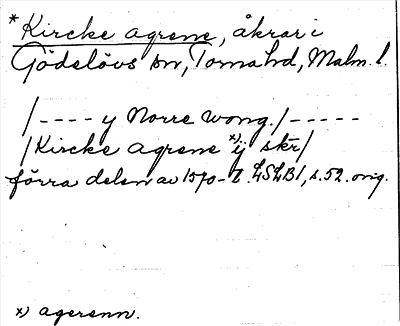 * Kircke agrene, åkrar i
Gödelövs sn, Torna hd, Malm. l.
/ - - - - y Norre Wong. / - - - - -
/ Kircke agrene x) ij skr /
förra delen av 1570-t. LSLB1, s. 52. orig.
x) agerenn.